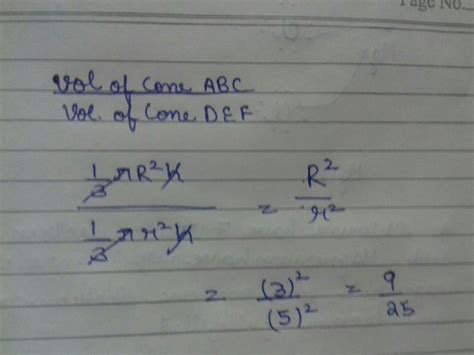 Page No.
Vol of Cone ABC
Vol. of Cone DEF
1/3 πR²h
1/3 πr²h
= R²/r²
= (3)²/(5)² = 9/25